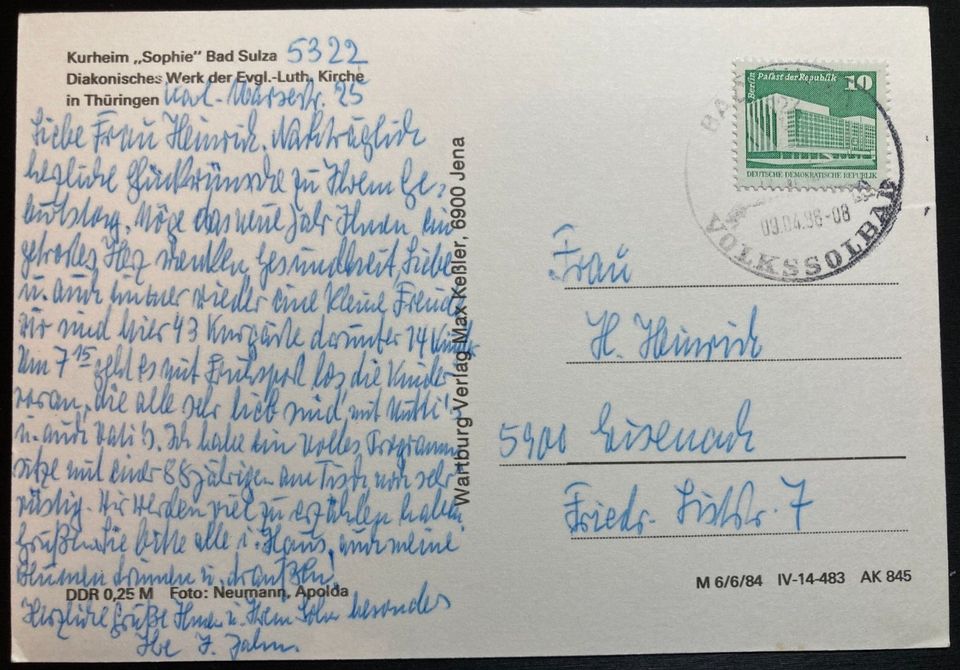 Kurheim „Sophie" Bad Sulza 5322
Diakonisches Werk der Evgl.-Luth. Kirche
in Thüringen Karl-Marxstr. 25
Liebe Frau Heinrich. Nachträglich
herzliche Glückwünsche zu Ihrem Ge-
burtstag. Möge das neue Jahr Ihnen ein
getrostes Herz schenken, Gesundheit, Liebe
u. auch immer wieder eine kleine Freude
Wir sind hier 43 Kurgäste darunter 14 Kinder
Um 7 15 geht es mit Frühsport los die Kinder
voran, die alle sehr lieb sind mit Mutti's
u. auch Vati's. Ich habe ein volles Programm
sitze mit einer 88 jährigen am Tisch noch sehr
rüstig. Wir werden viel zu erzählen haben
Grüßen Sie bitte alle i. Haus, auch meine
Blumen drinnen u. draußen!
DDR 0,25 M Foto: Neumann, Apolda
Herzliche Grüße Ihnen u. Ihrem Sohn besonders
Ihre J. Zahn.
Wartburg Verlag Max Keßler, 6900 Jena
Berlin Palast der Republik 10
DEUTSCHE DEMOKRATISCHE REPUBLIK
BAD
09.04.86-08
VOLKSSOLBAD
Frau
H. Heinrich
5900 Eisenach
Friedr. Liststr. 7
M 6/6/84 IV-14-483 AK 845